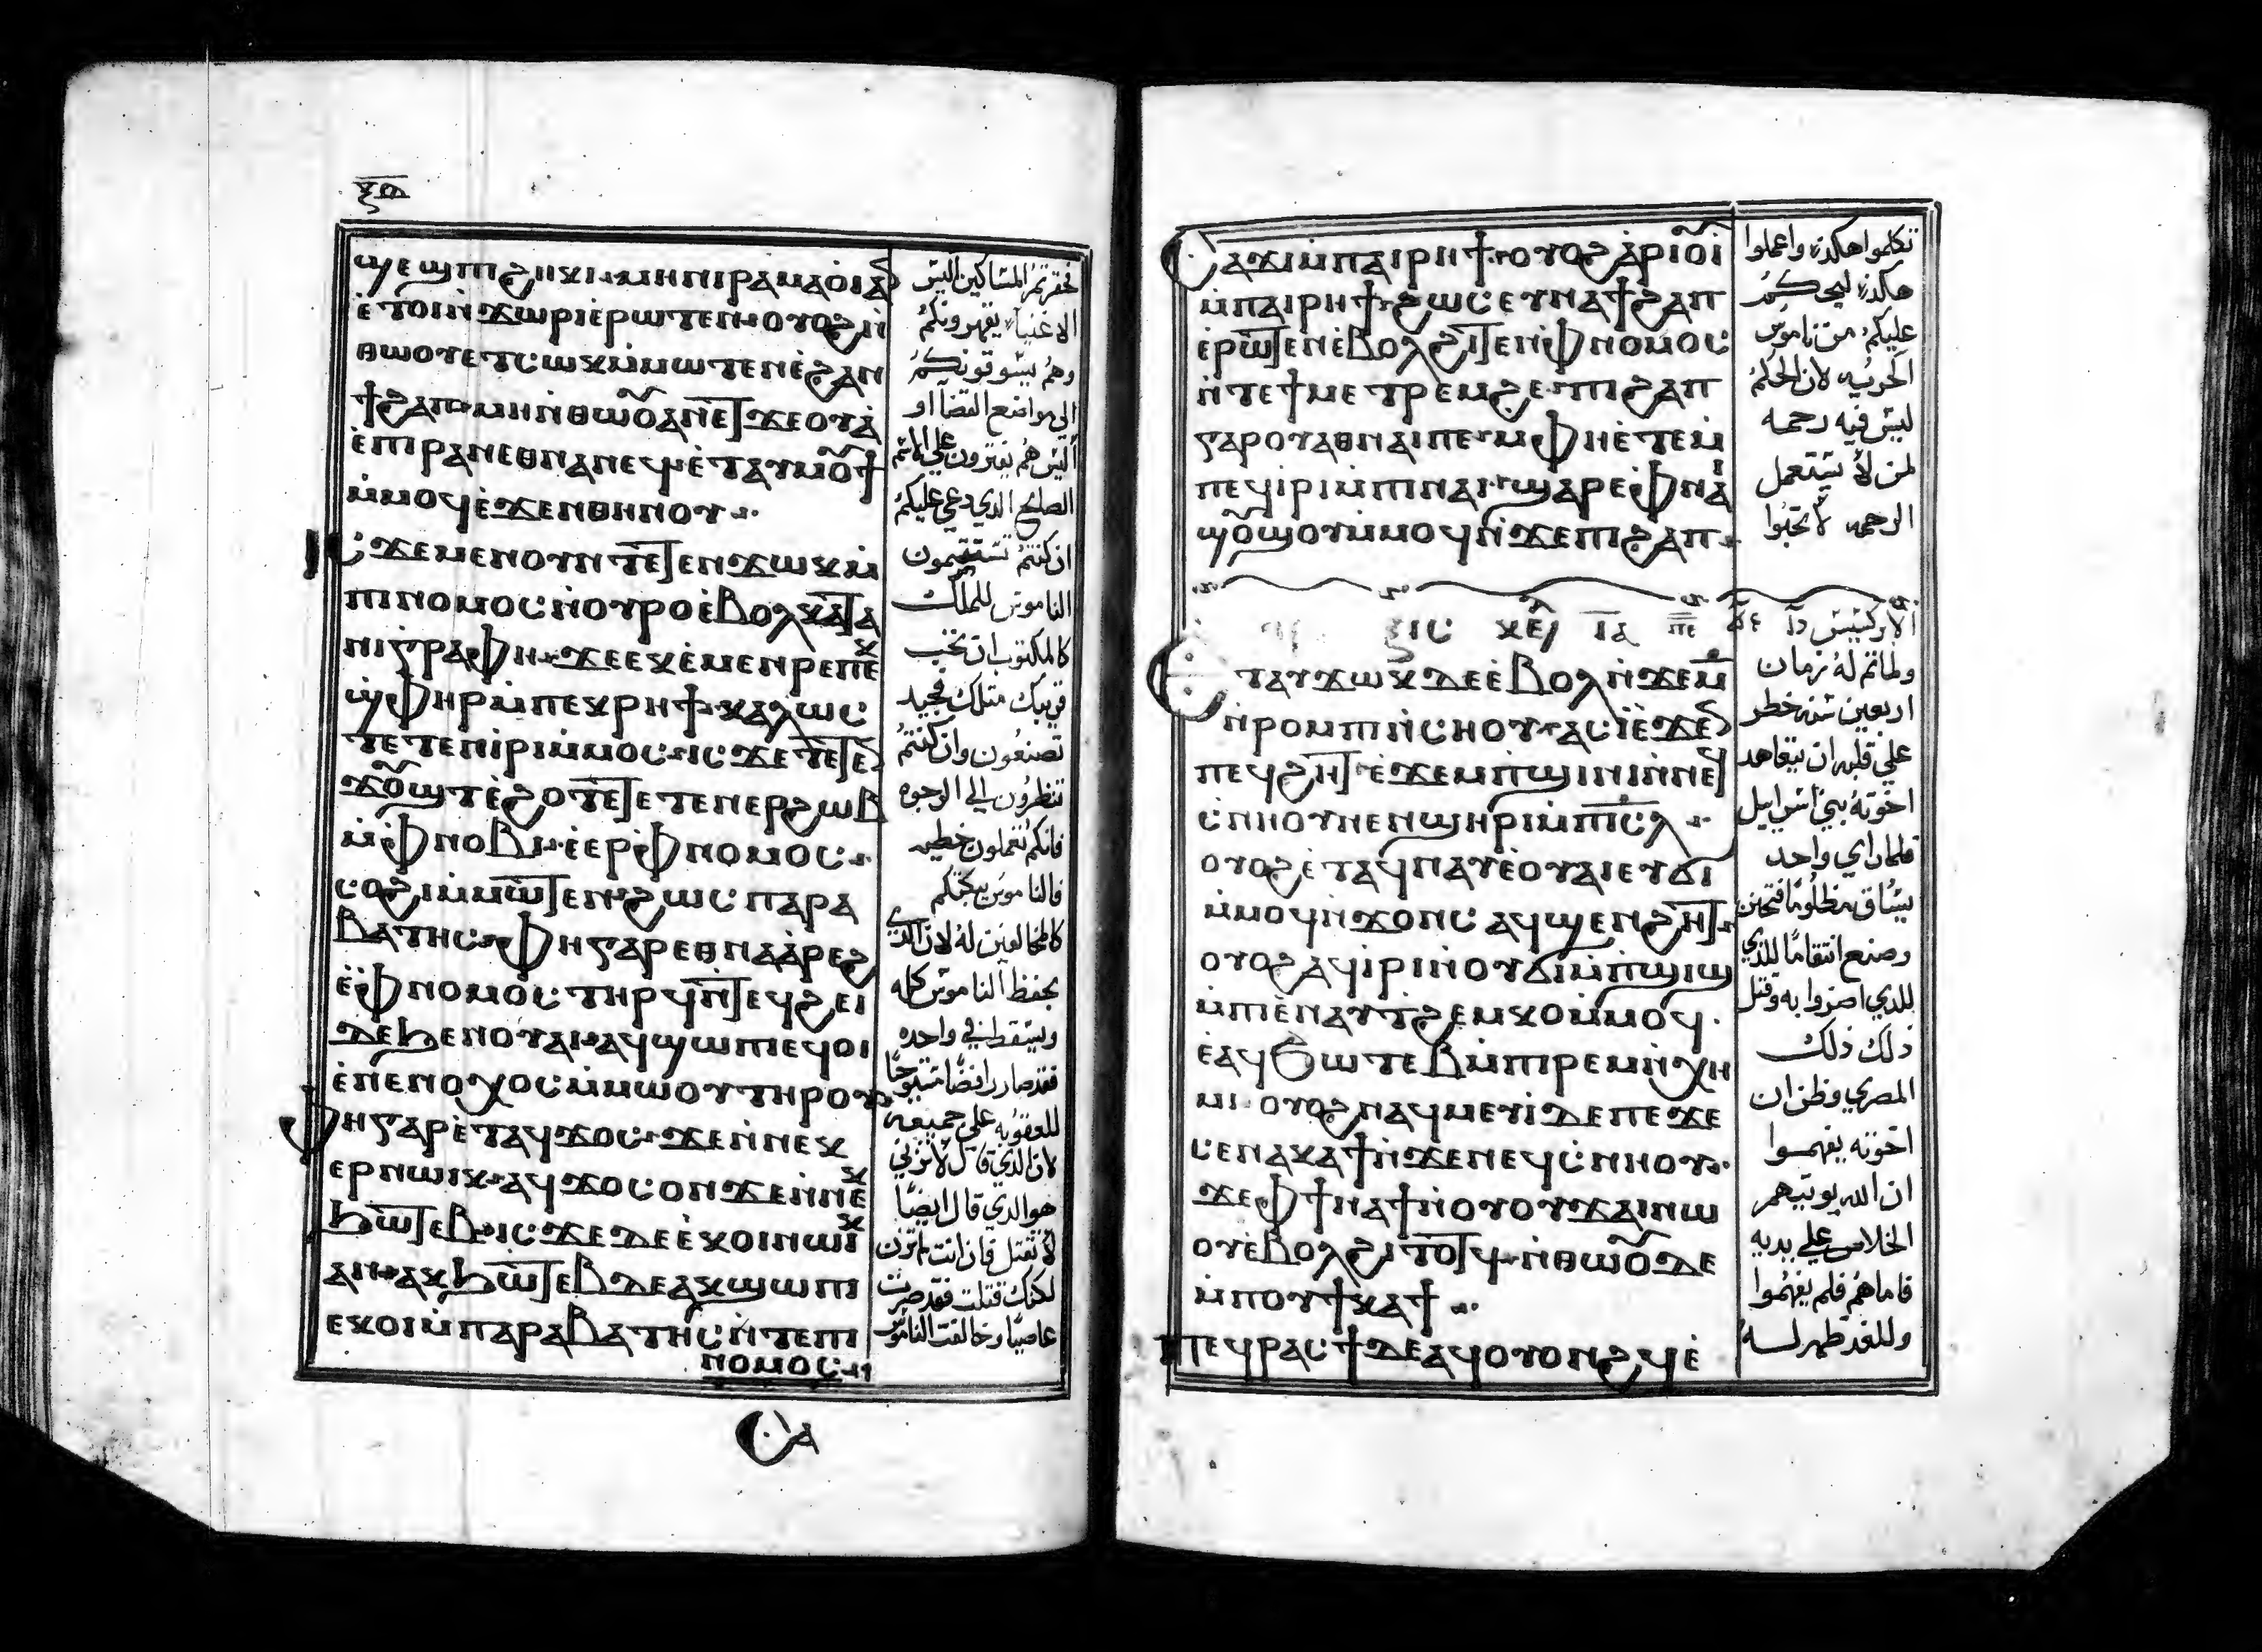 ϣⲉϣⲡⲓϩⲏⲕⲓ ⲙⲏⲛⲓⲣⲁⲙⲁⲟ̀ⲓⲁⲛ
ⲉ̀ⲧⲟⲓⲛ̀ϫⲱⲣⲓⲉ̀ⲣⲱⲧⲉⲛ ⲟⲩⲟϩⲛ̀
ⲑⲱⲟⲩⲉⲧⲥⲱⲕⲙ̀ⲙⲱⲧⲉⲛⲉ̀ϩⲁⲛ
ϯϩⲁⲡ ⲙⲏⲛ̀ⲑⲱⲟⲩⲁⲛⲉⲧϫⲉⲟⲩⲁ̀
ⲉ̀ⲡⲓⲣⲁⲛⲉⲑⲛⲁⲛⲉϥ ⲉ̀ⲧⲁⲩⲙⲟⲩϯ
ⲙ̀ⲙⲟϥⲉ̀ϫⲉⲛⲑⲏⲛⲟⲩ
ⲓⲥϫⲉⲙⲉⲛⲟⲩⲛⲧⲉⲧⲉⲛϫⲱⲕⲙ̀
ⲡⲓⲛⲟⲙⲟⲥⲛ̀ⲟⲩⲣⲟⲉ̀ⲃⲟⲗⲕⲁⲧⲁ
ⲛⲓⲅⲣⲁⲫⲏ ϫⲉⲉⲕⲉ̀ⲙⲉⲛⲣⲉⲡⲉⲕ
ϣ̀ⲫⲏⲣⲙ̀ⲡⲉⲕⲣⲏϯ ⲕⲁⲗⲱⲥ
ⲧⲉⲧⲉⲛⲓ̀ⲣⲓⲙ̀ⲙⲟⲥ ⲓⲥϫⲉⲧⲉⲧⲉⲛ
ϫⲟⲩϣⲧⲉ̀ϩⲟⲧⲉⲧⲉⲧⲉⲛⲉⲣϩⲱⲃ
ⲙ̀ⲫⲛⲟⲃⲓ ⲉ̀ⲉⲣⲫⲛⲟⲙⲟⲥ
ⲥⲟϩⲓⲙ̀ⲙⲱⲧⲉⲛ ϩⲱⲥ ⲡⲁⲣⲁ
ⲃⲁⲧⲏⲥ ⲫⲏⲅⲁⲣⲉⲑⲛⲁⲁ̀ⲣⲉϩ
ⲉ̀ⲫⲛⲟⲙⲟⲥ ⲧⲏⲣϥⲛ̀ⲧⲉϥϩⲉⲓ
ⲇⲉϧⲉⲛⲟⲩⲁⲓ ⲁϥϣⲱⲡⲓⲉϥⲟⲓ
ⲉ̀ⲛⲉⲛⲟⲭⲟⲥⲙ̀ⲙⲱⲟⲩⲧⲏⲣⲟⲩ
ⲫⲏⲅⲁⲣⲉ̀ⲧⲁϥϫⲟⲥ ϫⲉⲛ̀ⲛⲉⲕ
ⲉⲣⲛⲱⲓⲕ ⲁϥϫⲟⲥⲟⲛϫⲉⲛ̀ⲛⲉⲕ
ϧⲱⲧⲉⲃ ⲓⲥϫⲉⲇⲉⲉ̀ⲕⲟⲓⲛⲱⲓⲕ
ⲁⲛ ⲁⲕϧⲱⲧⲉⲃⲇⲉⲁⲕϣⲱⲡⲓ
ⲉⲕⲟⲓⲙ̀ⲡⲁⲣⲁⲃⲁⲧⲏⲥⲛ̀ⲧⲉⲡⲓ
ⲛⲟⲙⲟⲥ
ⲥⲁ
المساكين اليس
الاغنيا يقهرونكم
وهم يسوقونكم
الي مواضع القضا او
اليس هم يفترون علي الاسم
الصالح الذي دعي عليكم
ان كنتم تستتمون
الناموس للملك
كالمكتوب ان تحب
قريبك مثلك فجيد
تصنعون وان كنتم
تنظرون الي الوجوه
فانكم تعملون خطيه
فالناموس يبكتكم
كالمخالفين له لان الذي
يحفظ الناموس كله
ويسقط في واحده
فقد صار
للعقوبه علي جميعه
لان الذي قال لا تزني
هو الذي قال ايضا
لا تقتل فان انت لم تزن
لكنك قتلت فقد صرت
عاصيا وخالفت الناموس
ⲥⲁϫⲓⲙ̀ⲡⲁⲓⲣⲏϯ ⲟⲩⲟϩⲁ̀ⲣⲓⲟⲩⲓ̀
ⲙ̀ⲡⲁⲓⲣⲏϯ ϩⲱⲥⲉⲩⲛⲁϯϩⲁⲡ
ⲉ̀ⲣⲱⲧⲉⲛⲉ̀ⲃⲟⲗϩⲓⲧⲉⲛⲫⲛⲟⲙⲟⲥ
ⲛ̀ⲧⲉϯⲙⲉⲧⲣⲉⲙϩⲉ ⲡⲓϩⲁⲡ
ⲅⲁⲣⲟⲩⲁⲑⲛⲁⲓⲡⲉ ⲙ̀ⲫⲏⲉ̀ⲧⲉⲙ̀
ⲡⲉϥⲓⲣⲓⲙ̀ⲡⲓⲛⲁⲓ ϣⲁⲣⲉⲫⲛⲁⲓ
ϣⲟⲩϣⲟⲩⲙ̀ⲙⲟϥⲛ̀ϫⲉⲡⲓϩⲁⲡ
ⲉⲧⲁⲩϫⲱⲕⲇⲉⲉ̀ⲃⲟⲗⲛ̀ϫⲉⲙ̄
ⲛ̀ⲣⲟⲙⲡⲓⲛ̀ⲥⲏⲟⲩ ⲁⲥⲓ̀ⲉ̀ϫⲉⲛ
ⲡⲉϥϩⲏⲧ ⲉ̀ϫⲉⲙⲡϣⲓⲛⲓⲛ̀ⲛⲉϥ
ⲥ̀ⲛⲏⲟⲩⲛⲉⲛϣⲏⲣⲓⲙ̀ⲡⲓⲥ̄ⲗ̄
ⲟⲩⲟϩⲉ̀ⲧⲁϥⲛⲁⲩⲉ̀ⲟⲩⲁⲓⲉⲩϭⲓ
ⲙ̀ⲙⲟϥⲛ̀ϫⲟⲛⲥ ⲁϥϣⲉⲛϩⲏⲧ
ⲟⲩⲟϩⲁϥⲓ̀ⲣⲓⲛ̀ⲟⲩϭⲓⲙ̀ⲡϣⲓϣ
ⲙ̀ⲡⲓⲉ̀ⲛⲁⲩⲧϩⲉⲙⲕⲟⲙ̀ⲙⲟϥ
ⲉ̀ⲁϥϧⲱⲧⲉⲃⲙ̀ⲡⲓⲣⲉⲙⲛ̀ⲭⲏ
ⲙⲓ ⲟⲩⲟϩⲛⲁϥⲙⲉⲩⲓ̀ⲇⲉⲡⲉϫⲉ
ⲥⲉⲛⲁⲕⲁϯⲛ̀ϫⲉⲛⲉϥⲥ̀ⲛⲏⲟⲩ
ϫⲉⲫϯⲛⲁϯⲛ̀ⲟⲩⲟⲩϫⲁⲓⲛⲱ
ⲟⲩⲉ̀ⲃⲟⲗϩⲓⲧⲟⲧϥ ⲛ̀ⲑⲱⲟⲩⲇⲉ
ⲙ̀ⲡⲟⲩϯⲕⲁϯ
ⲡⲉϥⲣⲁⲥϯⲇⲉⲁϥⲟⲩⲟⲛϩϥⲉ̀
تكلموا هكذا واعملوا
هكذا ليحكم
عليكم من ناموس
الحريه لان الحكم
ليس فيه رحمه
لمن لا يستعمل
الرحمه
الابركسيس
ولما تم له زمان
اربعين سنه خطر
علي قلبه ان يتعاهد
اخوته بني اسراييل
فلما راي واحد
يساق مظلوما فتحنن
وصنع انتقاما للذي
للذي اضروا به وقتل
ذلك ذلك
المصري وظن ان
اخوته يفهموا
ان الله يوتيهم
الخلاص علي يديه
فاما هم فلم يفهموا
وللغد ظهر لــه